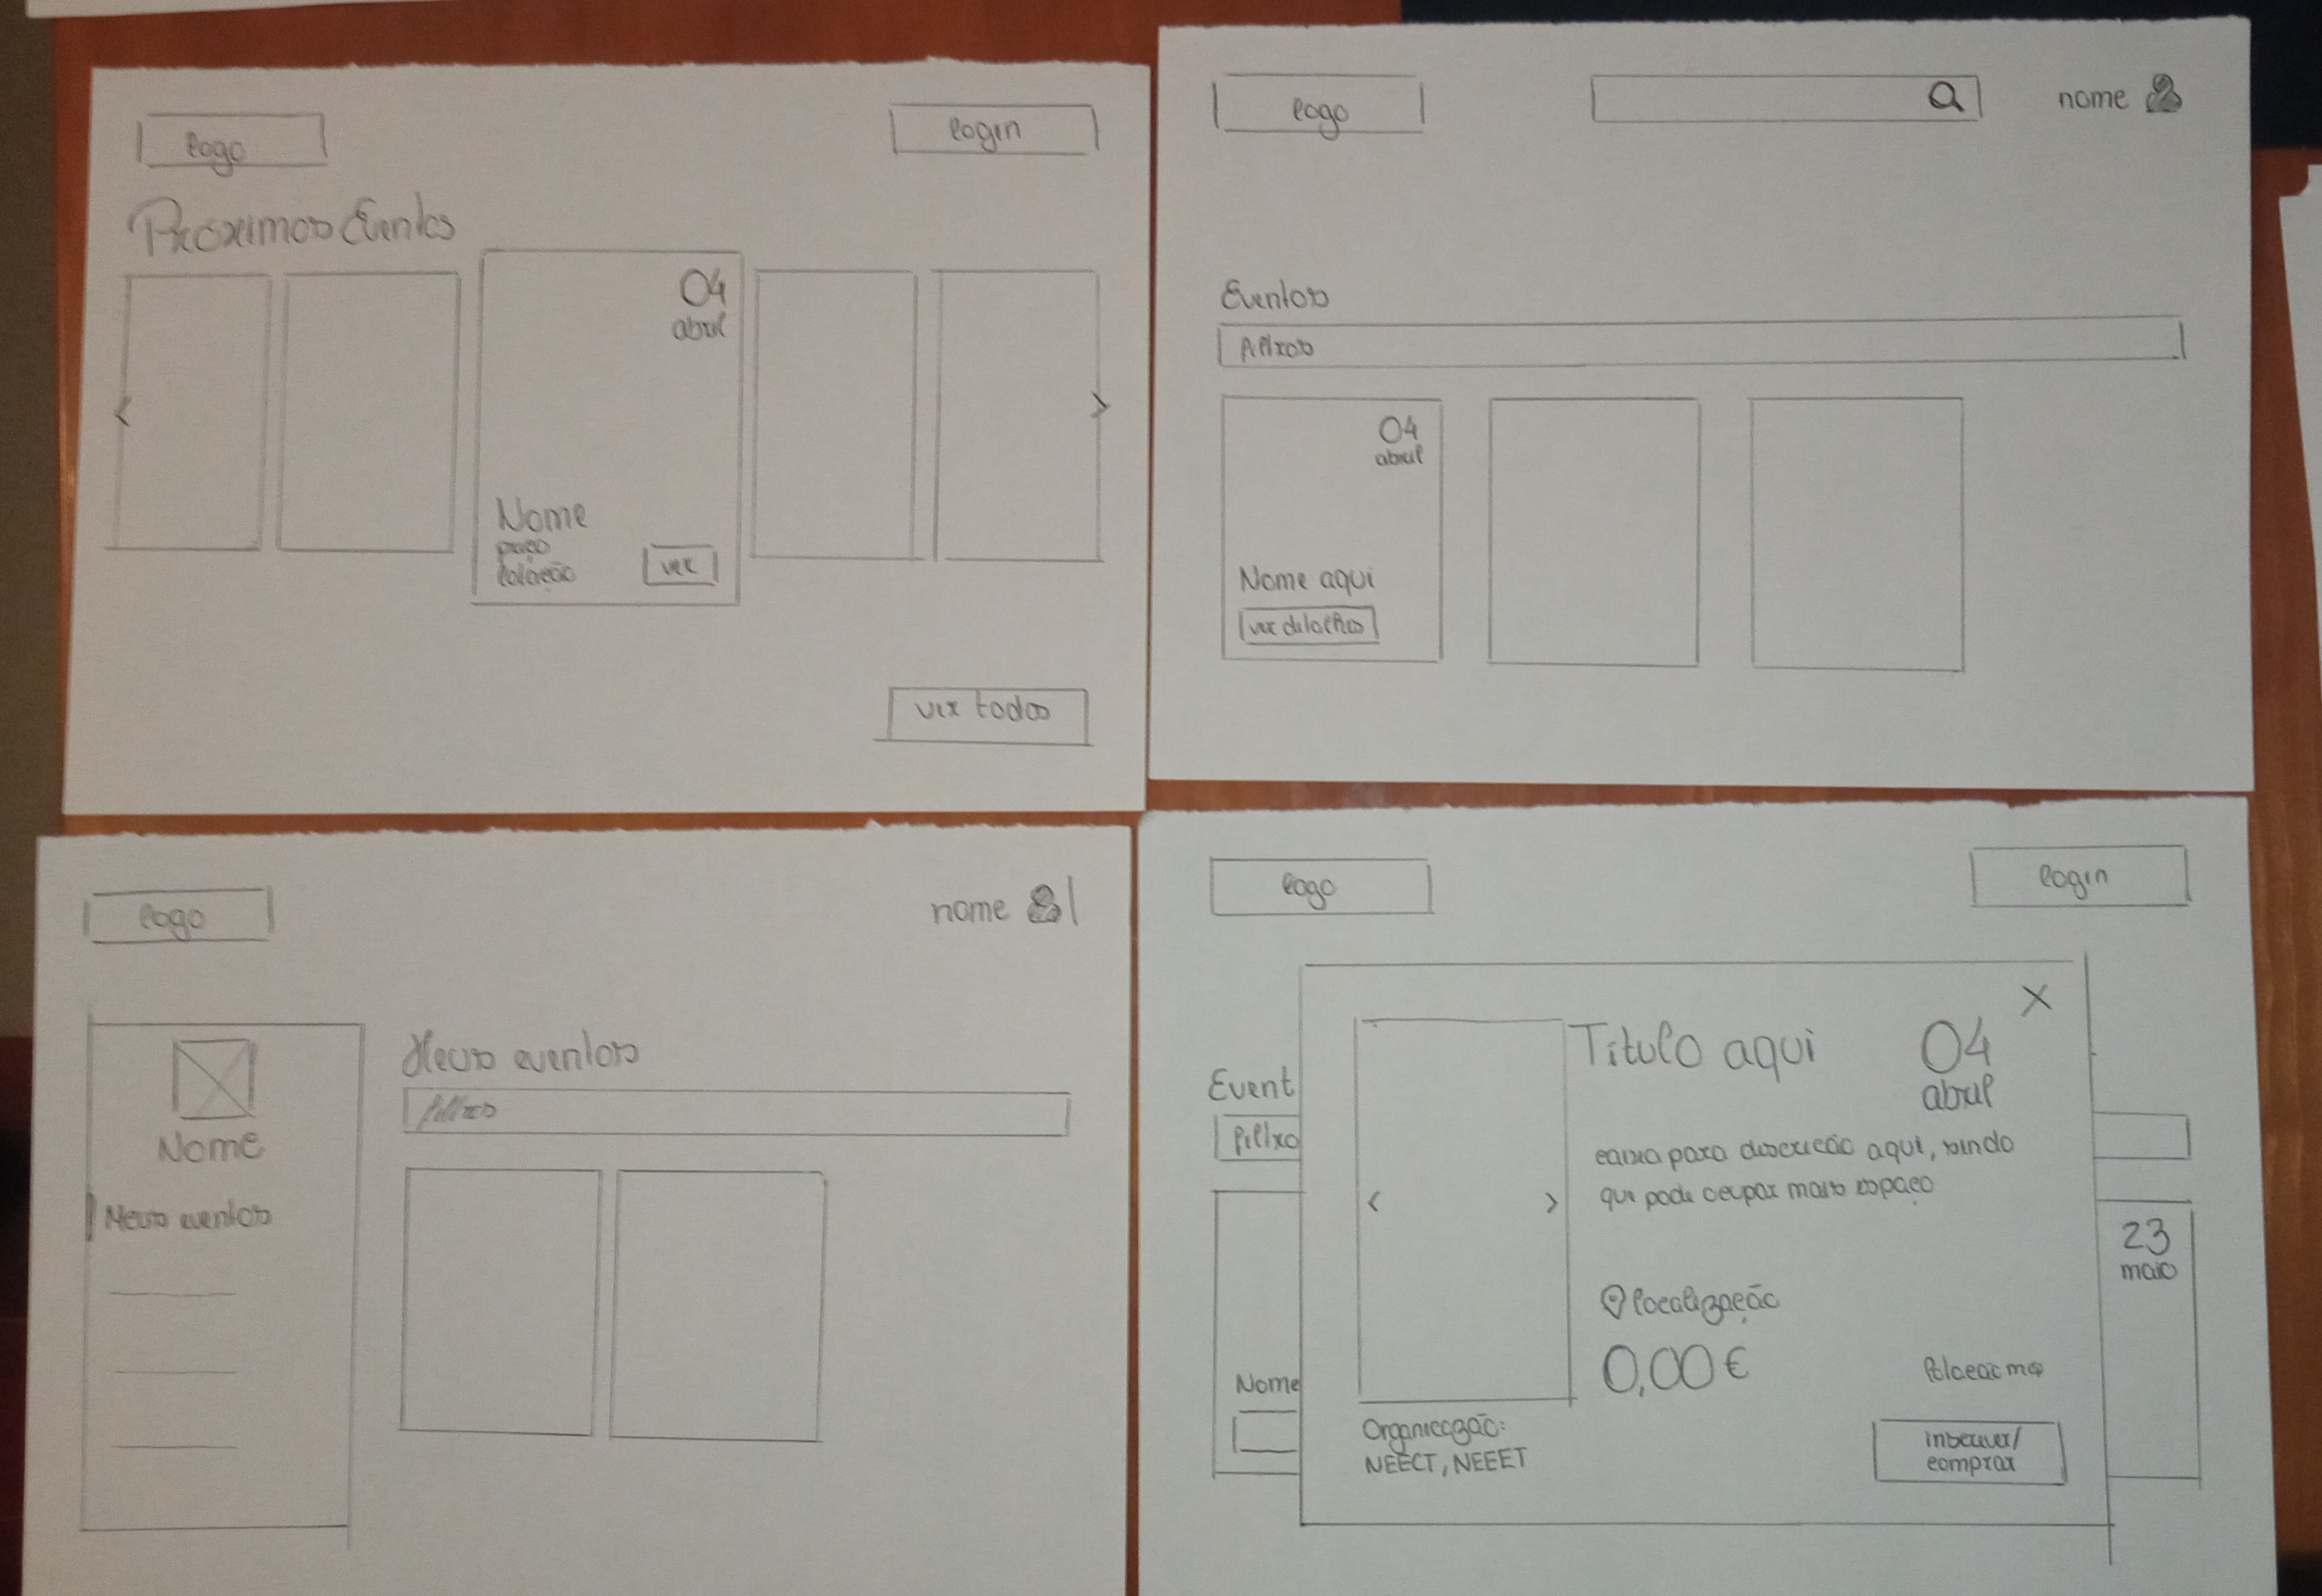 logo
login
Próximos Eventos
04
abril
Nome
preço
lotação
ver
ver todos
logo
nome
Eventos
filtros
04
abril
Nome aqui
ver detalhes
logo
nome
Nome
Meus eventos
Meus eventos
filtros
logo
login
Event
filtro
Nome
Título aqui
04
abril
caixa para descrição aqui, sendo
que pode ocupar mais espaço
localização
0,00€
Organização:
NEECT, NEEET
inscrever/
comprar
23
maio